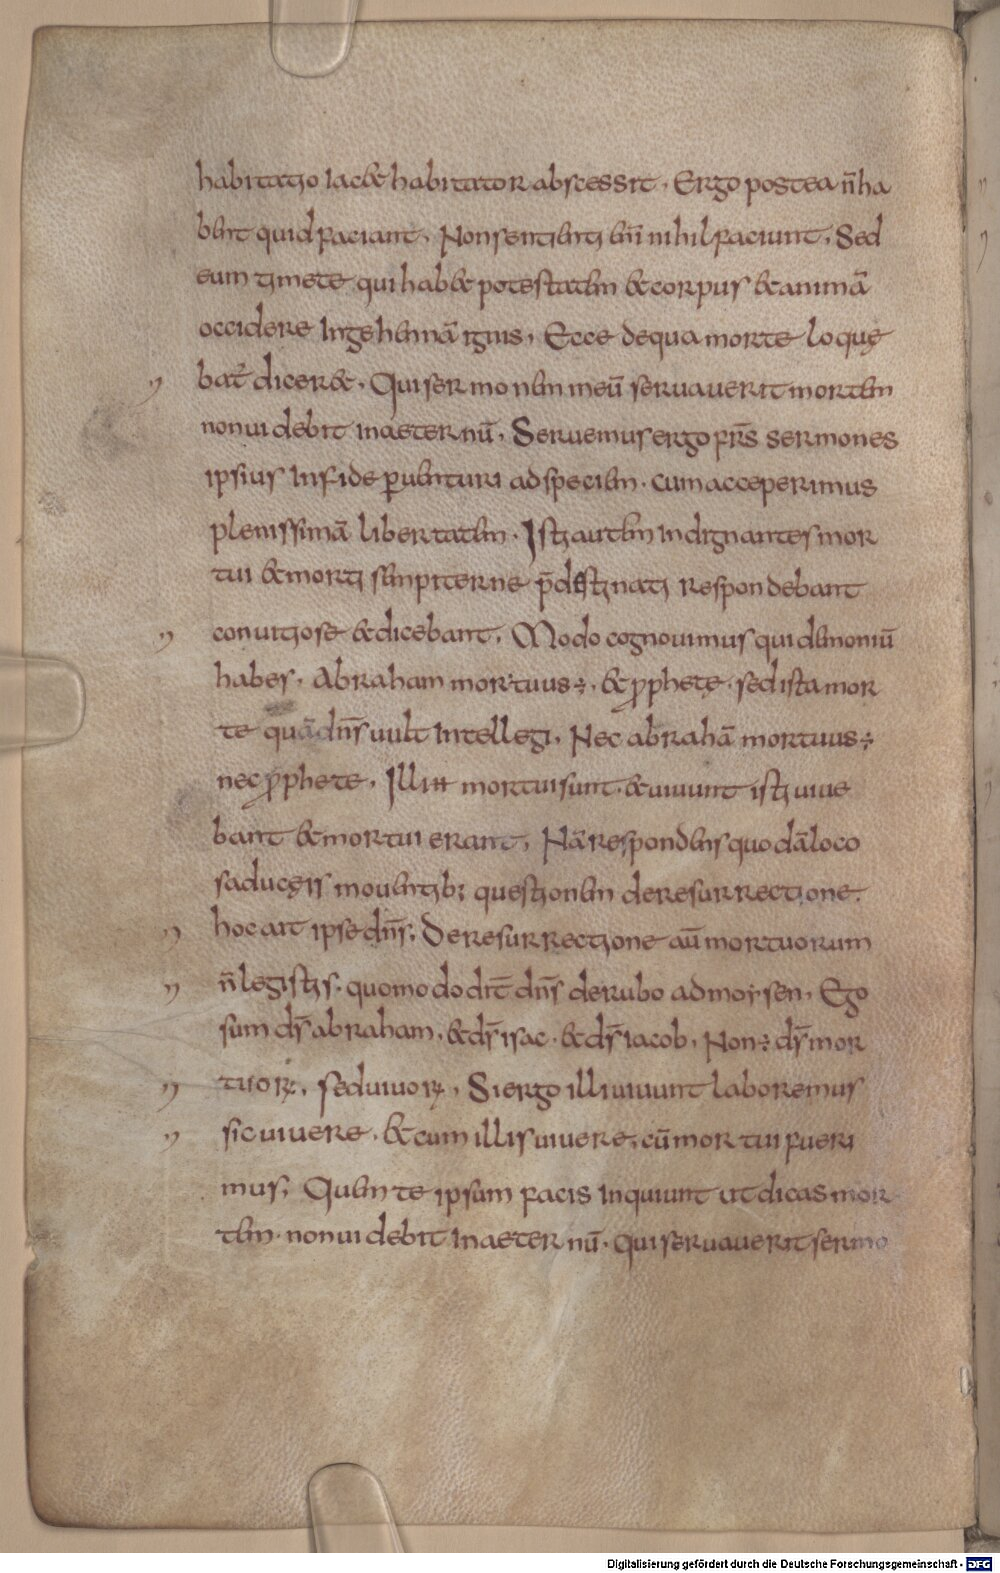 habitatio iac& habitator abscessit. Ergo postea n̄ ha
bent quid faciant. Non sentienti enī nihil faciunt. Sed
eum timete qui hab& potestatem & corpus & animā
occidere in gehennā ignis. Ecce de qua morte loque
bat̄ dicer&. Qui sermonem meū servaverit mortem
non videbit in aeternū. Servemus ergo fr̄s sermones
ipsius in fide p̱venturi ad speciem. cum acceperimus
plenissimā libertatem. Isti autem indignantes mor
tui & morti sempiterne p̄destinati respondebant
convitiose & dicebant. Modo cognovimus qui demoniū
habes. Abraham mortuus÷. & ꝓphetę. sed ista mor
te quā dn̄s vult intellegi. Nec abrahā mortuus÷
nec ꝓphete. Illi ħ mortui sunt. & vivunt isti vive
bant & mortui erant. Nā respondens quodā loco
saducęis moventib; questionem de resurrectione.
hoc ait ipse dn̄s. De resurrectione aū mortuorum
n̄ legistis. quomodo dic̄ dn̄s de rubo ad moysen. Ego
sum ds̄ abraham. & ds̄ isac. & ds̄ iacob. Non÷ ds̄ mor
tuoꝝ. sed vivoꝝ. Si ergo illi vivunt laboremus
sic vivere. & cum illis vivere. cū mortui fueri
mus. Quem te ipsum facis inquiunt ut dicas mor
tem. non videbit in aeternū. qui servaverit sermo
Digitalisierung gefördert durch die Deutsche Forschungsgemeinschaft - DFG